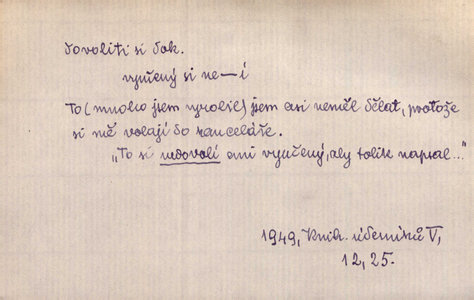 dovoliti si dok.
vyučený si ne—í
To (mnoho jsem vyrobil) jsem asi neměl dělat, protože
si mě volají do kanceláře.
„To si nedovolí ani vyučený, aby tolik napsal..."
1949, Knih. úderníků V,
12, 25.